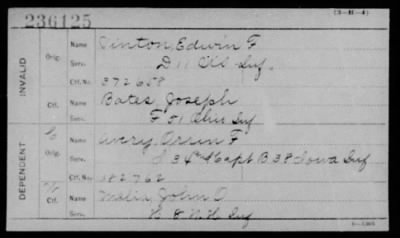 236125
(3-H-4)
INVALID
Orig. Name Vinton, Edwin F
Serv. D 11 Inf.
Ctf. No. 372658
Ctf. Name Bates, Joseph
Serv. F 51 Ohio Inf
DEPENDENT
Orig. Name Avery, Orrin F
Serv. 34 & Capt B 38 Iowa Inf
Ctf. No. 382762
Ctf. Name Malia, John O
Serv. 8 N.H. Inf